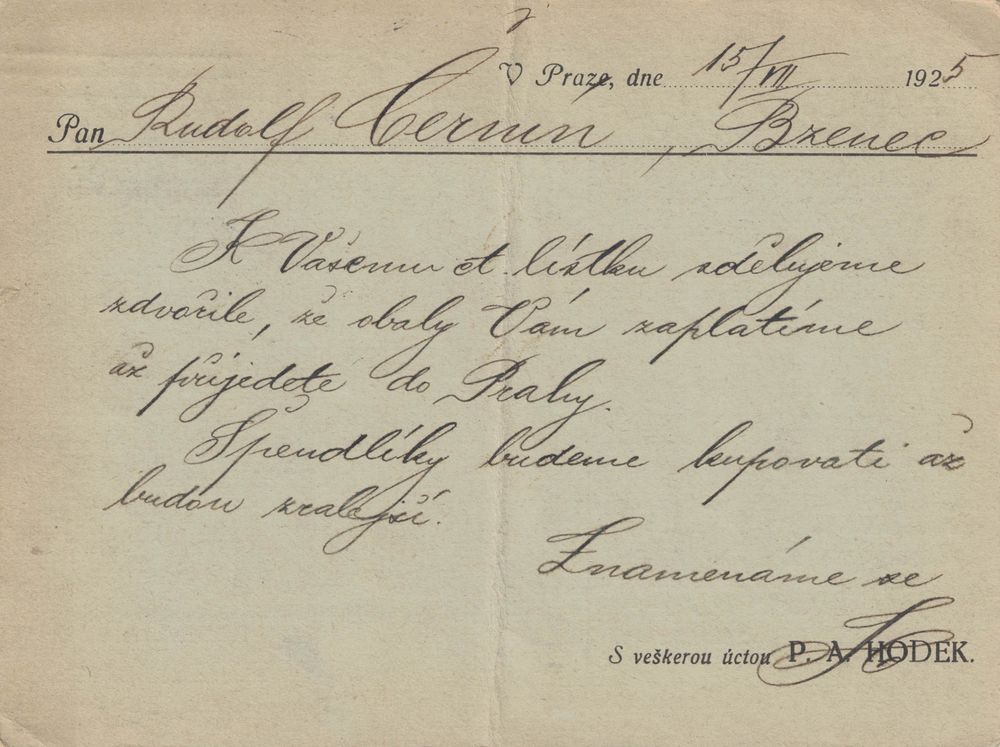 V Praze, dne 15/VII 1925
Pan Rudolf Černín, Bzenec
K Vašemu ct. lístku sdělujeme
zdvořile, že obaly Vám zaplatíme
až přijedete do Prahy.
Špendlíky budeme kupovati až
budou zralejší.
Znamenáme se
S veškerou úctou P. A. HODEK.